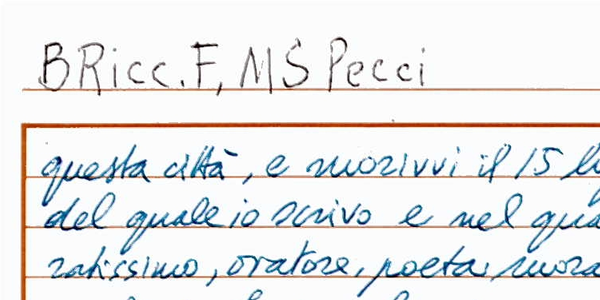 BRicc. F, MS Pecci
questa città, e morivvi il 15
del quale io scrivo e nel
ratissimo, oratore, poeta,